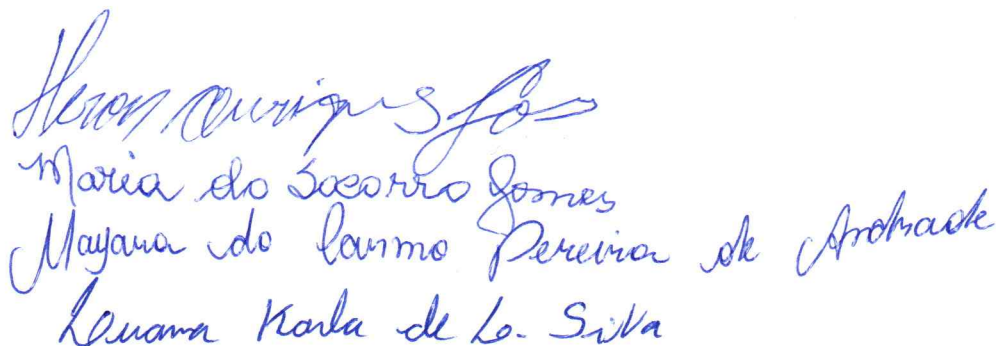 Heron
Maria do Socorro Gomes
Mayara do Carmo Pereira de Andrade
Luana Karla de L. Silva